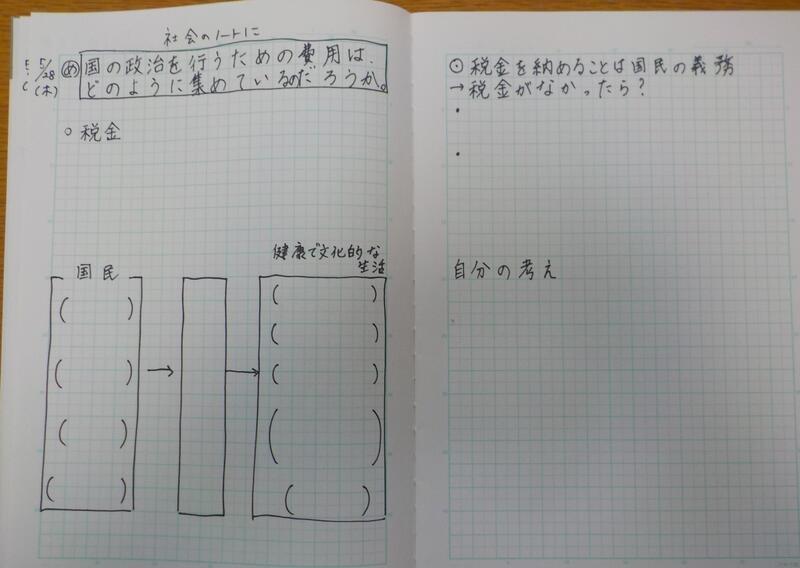 社会のノートに
5/28
(木)
め
国の政治を行うための費用は、
どのように集めているのだろうか。
○税金
国民
(　　)
(　　)
(　　)
(　　)
→
→
健康で文化的な
生活
(　　)
(　　)
(　　)
(　　)
(　　)
⊙税金を納めることは国民の義務
→税金がなかったら?
・
・
自分の考え